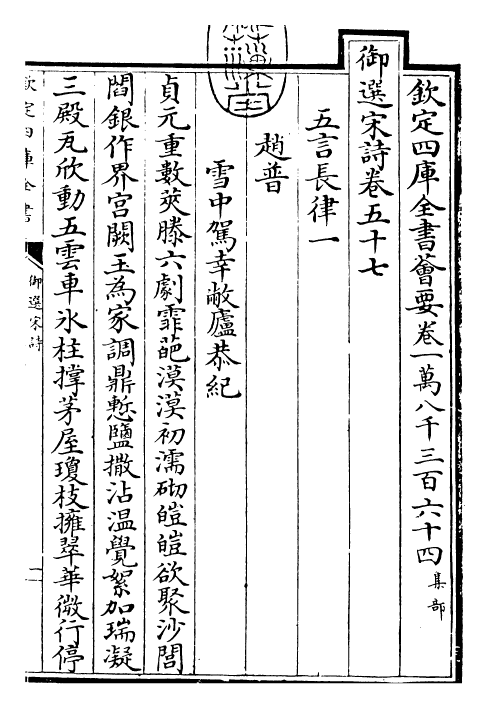 欽定四庫全書薈要卷一萬八千三百六十四集部
御選宋詩卷五十七
五言長律一
趙普
雪中駕幸敝廬恭紀
貞元重數莢滕六劇霏葩漠漠初濡砌皚皚欲聚沙閭
閻銀作界宮闕玉為家調鼎慙鹽撒沾温覺絮加瑞凝
三殿瓦欣動五雲車氷柱撑茅屋瓊枝擁翠華微行停
欽定四庫全書
御選宋詩
一